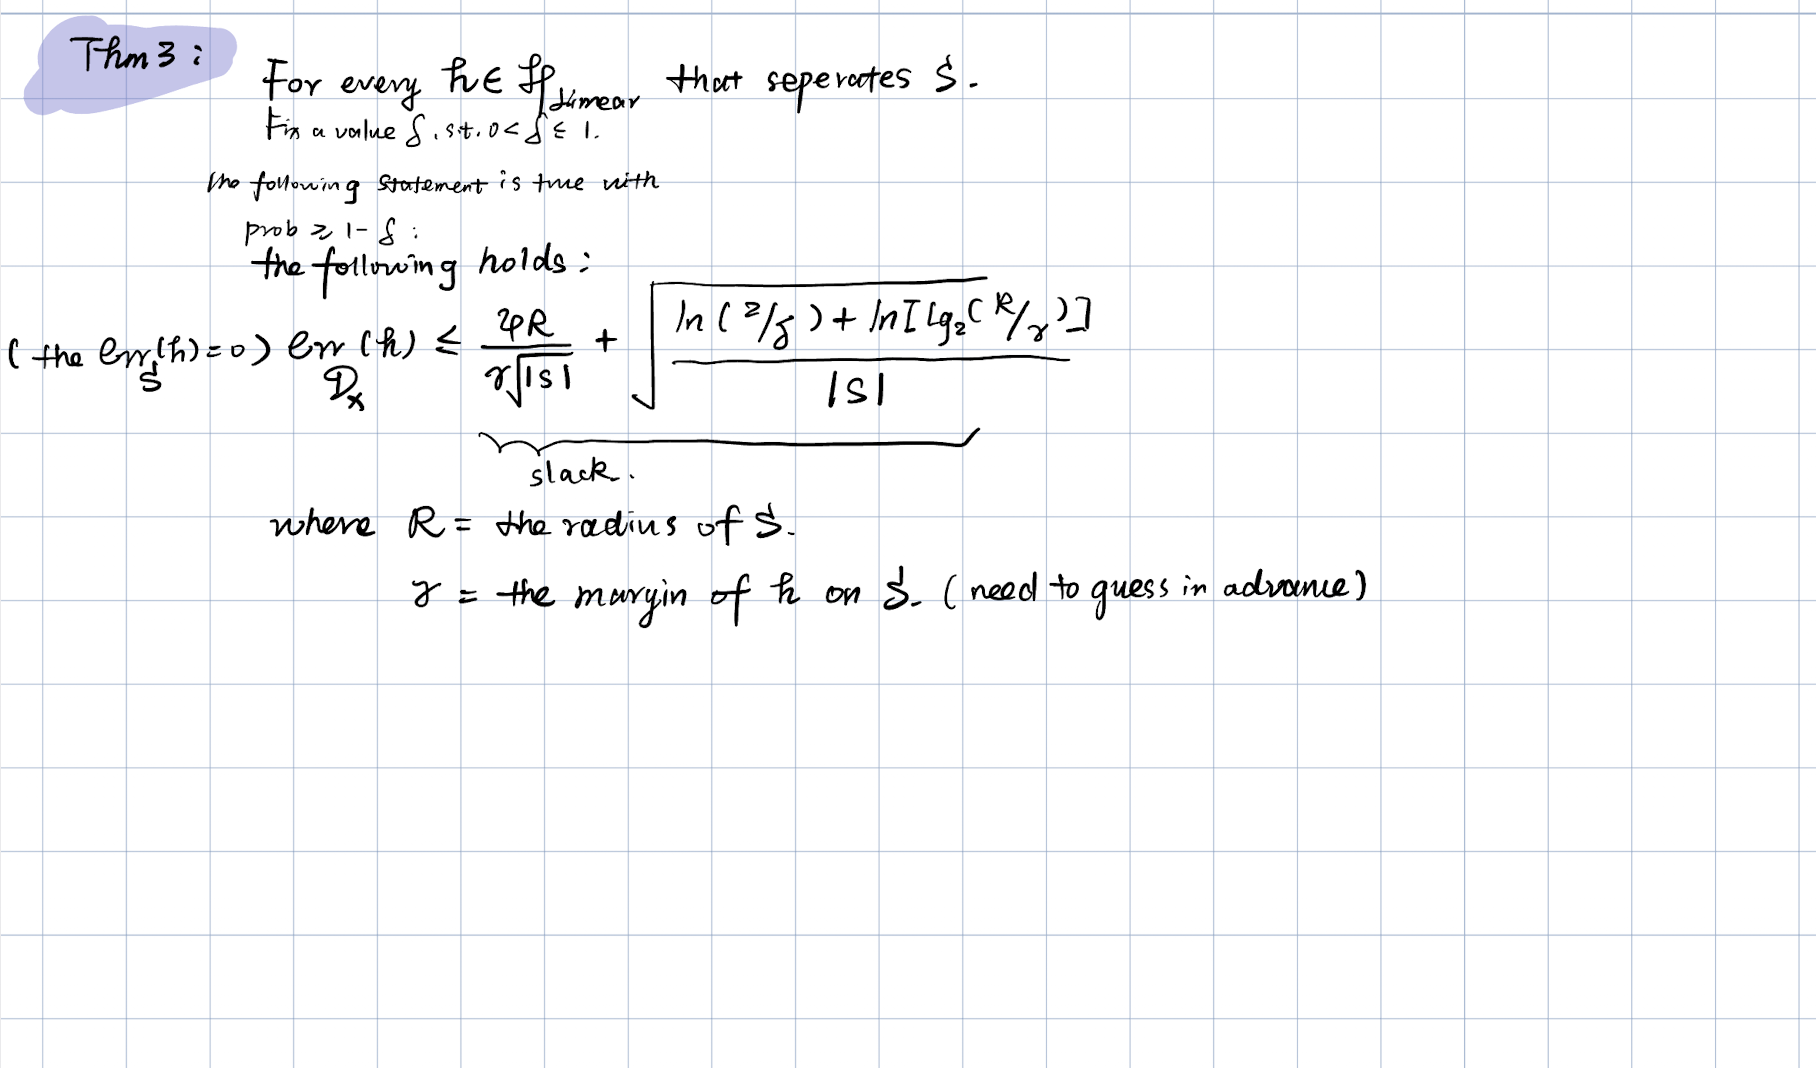 Thm 3 :
For every h ∈ ℋ_linear that seperates S.
Fix a value δ, s.t. 0 < δ ≤ 1.
the following statement is true with
prob ≥ 1 - δ :
the following holds :
( the err_S(h) = 0 ) err_{D_x}(h) ≤ 4R / (γ√|S|) + √( (ln(2/δ) + ln⌈lg₂(R/γ)⌉) / |S| )
slack.
where R = the radius of S.
γ = the margin of h on S. ( need to guess in advance )